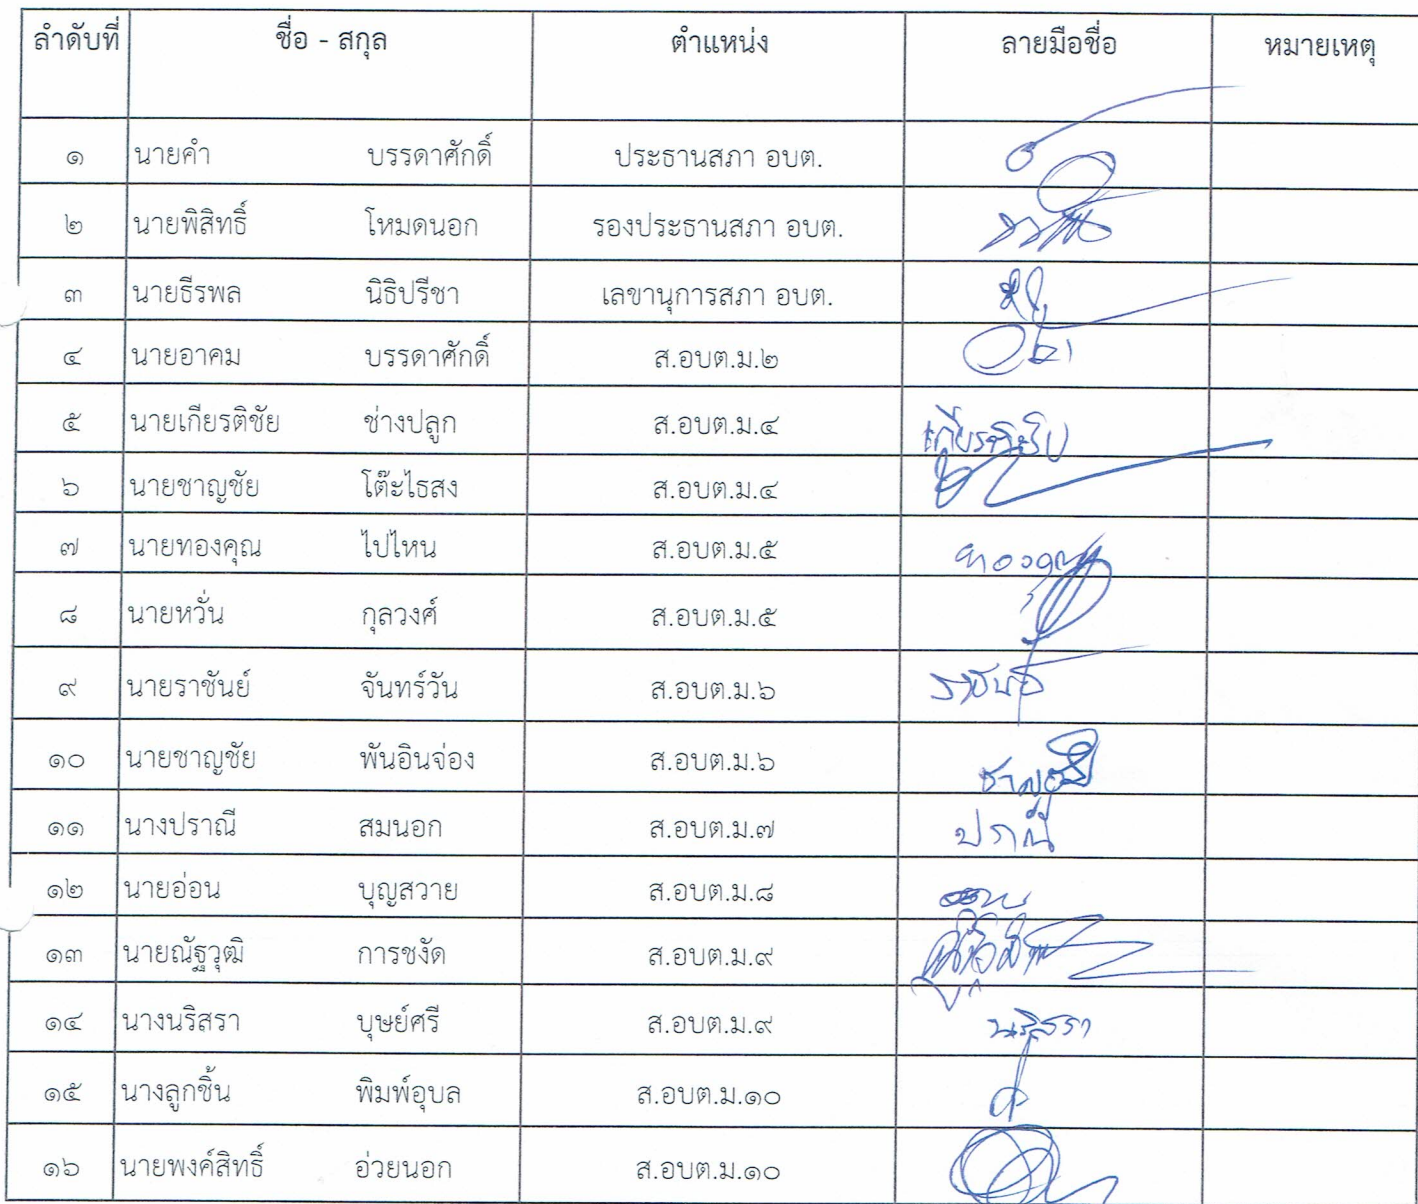 ลำดับที่ ชื่อ - สกุล ตำแหน่ง ลายมือชื่อ หมายเหตุ
๑ นายคำ บรรดาศักดิ์ ประธานสภา อบต.
๒ นายพิสิทธิ์ โหมดนอก รองประธานสภา อบต.
๓ นายธีรพล นิธิปรีชา เลขานุการสภา อบต.
๔ นายอาคม บรรดาศักดิ์ ส.อบต.ม.๒
๕ นายเกียรติชัย ช่างปลูก ส.อบต.ม.๔
๖ นายชาญชัย โต๊ะไธสง ส.อบต.ม.๔
๗ นายทองคุณ ไปไหน ส.อบต.ม.๕
๘ นายหวั่น กุลวงศ์ ส.อบต.ม.๕
๙ นายราชันย์ จันทร์วัน ส.อบต.ม.๖
๑๐ นายชาญชัย พันอินจ่อง ส.อบต.ม.๖ ชาญชัย
๑๑ นางปราณี สมนอก ส.อบต.ม.๗ ปราณี
๑๒ นายอ่อน บุญสวาย ส.อบต.ม.๘
๑๓ นายณัฐวุฒิ การชงัด ส.อบต.ม.๙
๑๔ นางนริสรา บุษย์ศรี ส.อบต.ม.๙ นริสรา
๑๕ นางลูกชิ้น พิมพ์อุบล ส.อบต.ม.๑๐
๑๖ นายพงค์สิทธิ์ อ่วยนอก ส.อบต.ม.๑๐